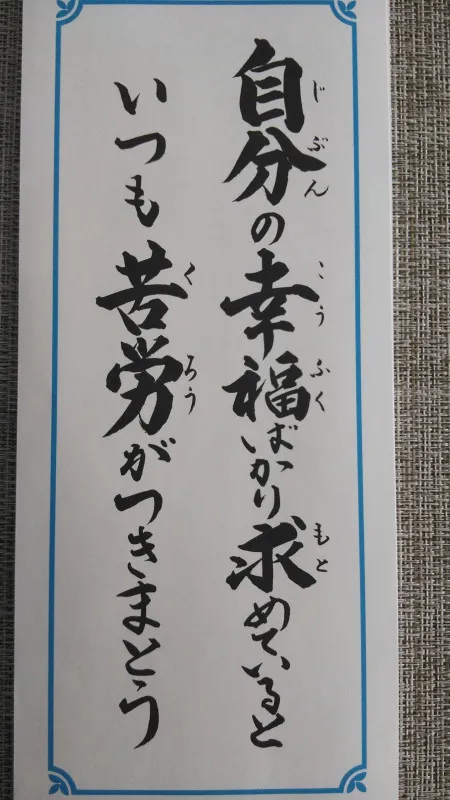 自分の幸福ばかり求めていると
いつも苦労がつきまとう
じぶん
こうふく
もと
くろう